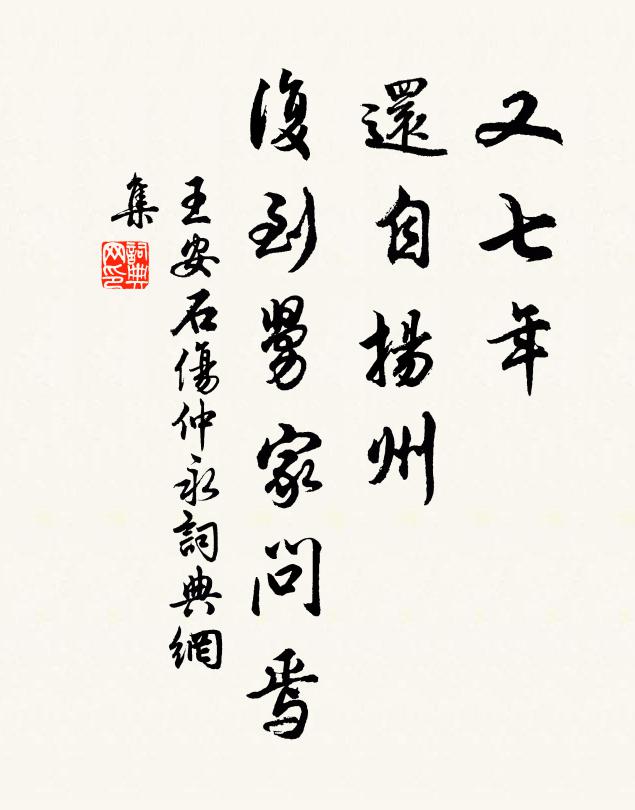 又七年
還自揚州
復到舅家問焉
王安石傷仲永詞典網
集
詞典
网印